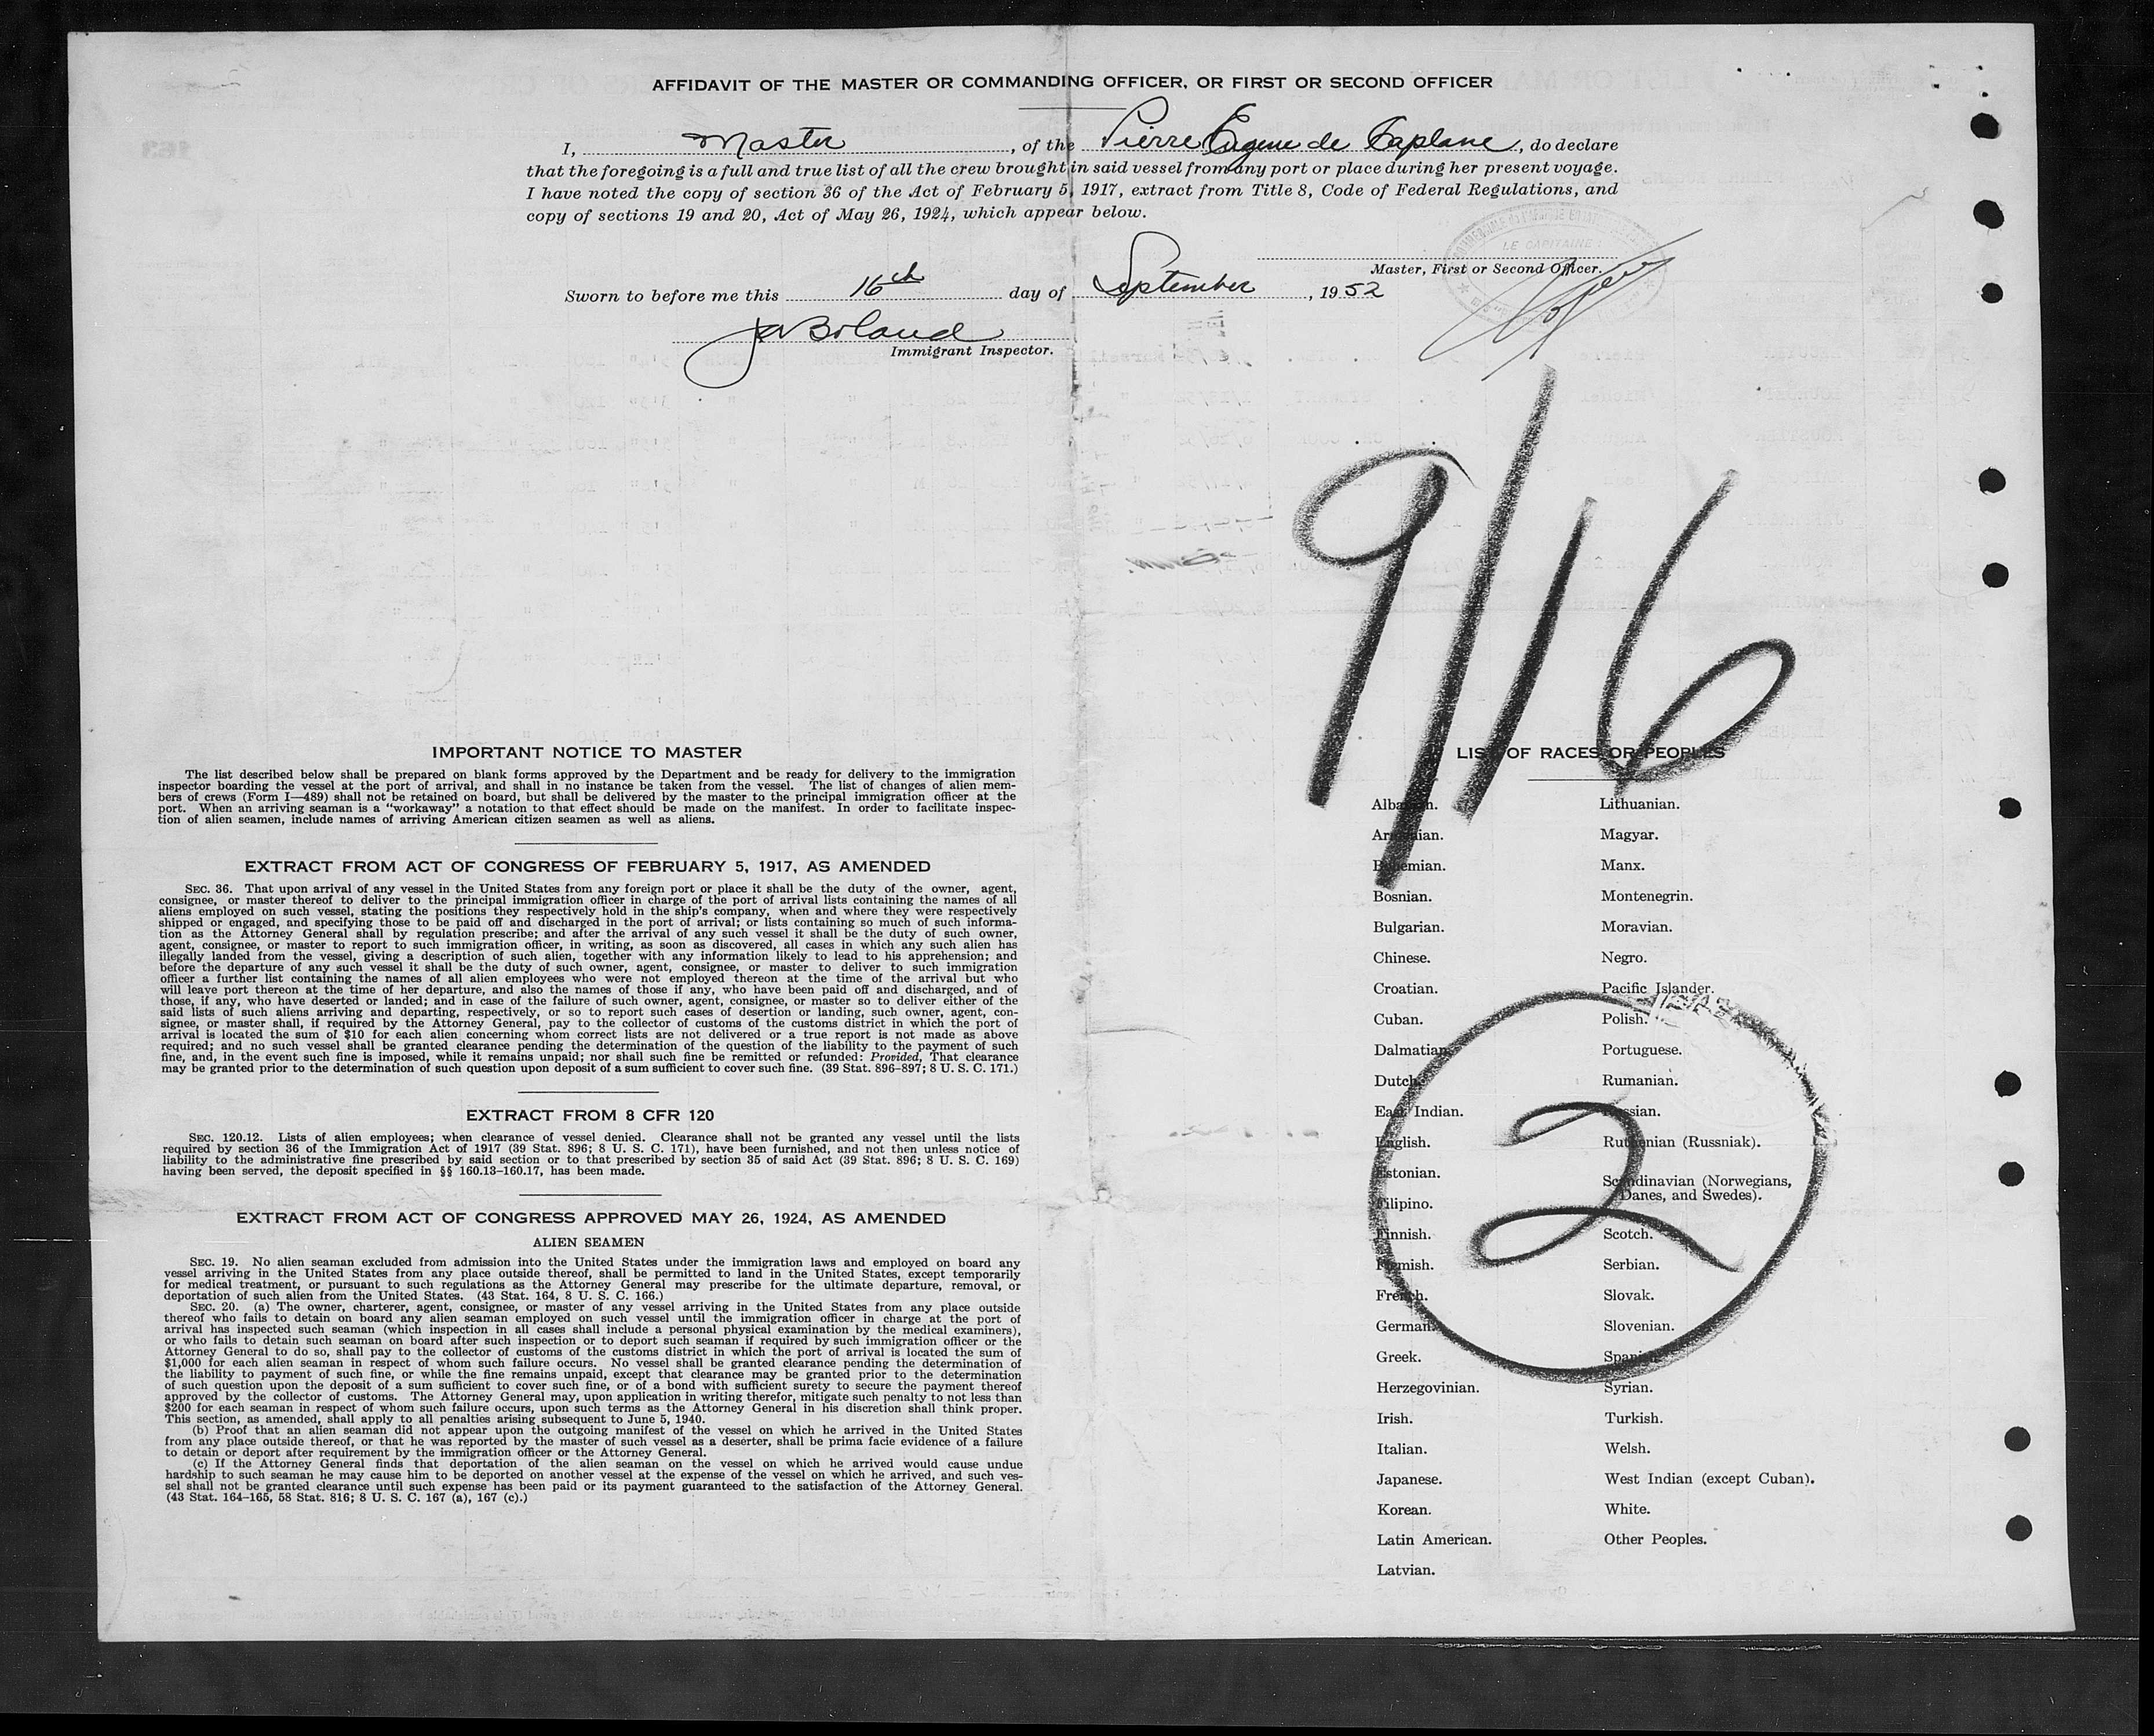 AFFIDAVIT OF THE MASTER OR COMMANDING OFFICER, OR FIRST OR SECOND OFFICER
I, Master, of the Pierre Eugene de Caplane, do declare
that the foregoing is a full and true list of all the crew brought in said vessel from any port or place during her present voyage.
I have noted the copy of section 36 of the Act of February 5, 1917, extract from Title 8, Code of Federal Regulations, and
copy of sections 19 and 20, Act of May 26, 1924, which appear below.
LE CAPITAINE
Master, First or Second Officer.
Sworn to before me this 16th day of September, 1952
Boland
Immigrant Inspector.
9/16
IMPORTANT NOTICE TO MASTER
The list described below shall be prepared on blank forms approved by the Department and be ready for delivery to the immigration
inspector boarding the vessel at the port of arrival, and shall in no instance be taken from the vessel. The list of changes of alien mem-
bers of crews (Form I—489) shall not be retained on board, but shall be delivered by the master to the principal immigration officer at the
port. When an arriving seaman is a "workaway" a notation to that effect should be made on the manifest. In order to facilitate inspec-
tion of alien seamen, include names of arriving American citizen seamen as well as aliens.
EXTRACT FROM ACT OF CONGRESS OF FEBRUARY 5, 1917, AS AMENDED
SEC. 36. That upon arrival of any vessel in the United States from any foreign port or place it shall be the duty of the owner, agent,
consignee, or master thereof to deliver to the principal immigration officer in charge of the port of arrival lists containing the names of all
aliens employed on such vessel, stating the positions they respectively hold in the ship's company, when and where they were respectively
shipped or engaged, and specifying those to be paid off and discharged in the port of arrival; or lists containing so much of such informa-
tion as the Attorney General shall by regulation prescribe; and after the arrival of any such vessel it shall be the duty of such owner,
agent, consignee, or master to report to such immigration officer, in writing, as soon as discovered, all cases in which any such alien has
illegally landed from the vessel, giving a description of such alien, together with any information likely to lead to his apprehension; and
before the departure of any such vessel it shall be the duty of such owner, agent, consignee, or master to deliver to such immigration
officer a further list containing the names of all alien employees who were not employed thereon at the time of the arrival but who
will leave port thereon at the time of her departure, and also the names of those if any, who have been paid off and discharged, and of
those, if any, who have deserted or landed; and in case of the failure of such owner, agent, consignee, or master so to deliver either of the
said lists of such aliens arriving and departing, respectively, or so to report such cases of desertion or landing, such owner, agent, con-
signee, or master shall, if required by the Attorney General, pay to the collector of customs of the customs district in which the port of
arrival is located the sum of $10 for each alien concerning whom correct lists are not delivered or a true report is not made as above
required; and no such vessel shall be granted clearance pending the determination of the question of the liability to the payment of such
fine, and, in the event such fine is imposed, while it remains unpaid; nor shall such fine be remitted or refunded: Provided, That clearance
may be granted prior to the determination of such question upon deposit of a sum sufficient to cover such fine. (39 Stat. 896–897; 8 U. S. C. 171.)
EXTRACT FROM 8 CFR 120
SEC. 120.12. Lists of alien employees; when clearance of vessel denied. Clearance shall not be granted any vessel until the lists
required by section 36 of the Immigration Act of 1917 (39 Stat. 896; 8 U. S. C. 171), have been furnished, and not then unless notice of
liability to the administrative fine prescribed by said section or to that prescribed by section 35 of said Act (39 Stat. 896; 8 U. S. C. 169)
having been served, the deposit specified in §§ 160.13–160.17, has been made.
EXTRACT FROM ACT OF CONGRESS APPROVED MAY 26, 1924, AS AMENDED
ALIEN SEAMEN
SEC. 19. No alien seaman excluded from admission into the United States under the immigration laws and employed on board any
vessel arriving in the United States from any place outside thereof, shall be permitted to land in the United States, except temporarily
for medical treatment, or pursuant to such regulations as the Attorney General may prescribe for the ultimate departure, removal, or
deportation of such alien from the United States. (43 Stat. 164, 8 U. S. C. 166.)
SEC. 20. (a) The owner, charterer, agent, consignee, or master of any vessel arriving in the United States from any place outside
thereof who fails to detain on board any alien seaman employed on such vessel until the immigration officer in charge at the port of
arrival has inspected such seaman (which inspection in all cases shall include a personal physical examination by the medical examiners),
or who fails to detain such seaman on board after such inspection or to deport such seaman if required by such immigration officer or the
Attorney General to do so, shall pay to the collector of customs of the customs district in which the port of arrival is located the sum of
$1,000 for each alien seaman in respect of whom such failure occurs. No vessel shall be granted clearance pending the determination of
the liability to payment of such fine, or while the fine remains unpaid, except that clearance may be granted prior to the determination
of such question upon the deposit of a sum sufficient to cover such fine, or of a bond with sufficient surety to secure the payment thereof
approved by the collector of customs. The Attorney General may, upon application in writing therefor, mitigate such penalty to not less than
$200 for each seaman in respect of whom such failure occurs, upon such terms as the Attorney General in his discretion shall think proper.
This section, as amended, shall apply to all penalties arising subsequent to June 5, 1940.
(b) Proof that an alien seaman did not appear upon the outgoing manifest of the vessel on which he arrived in the United States
from any place outside thereof, or that he was reported by the master of such vessel as a deserter, shall be prima facie evidence of a failure
to detain or deport after requirement by the immigration officer or the Attorney General.
(c) If the Attorney General finds that deportation of the alien seaman on the vessel on which he arrived would cause undue
hardship to such seaman he may cause him to be deported on another vessel at the expense of the vessel on which he arrived, and such ves-
sel shall not be granted clearance until such expense has been paid or its payment guaranteed to the satisfaction of the Attorney General.
(43 Stat. 164–165, 58 Stat. 816; 8 U. S. C. 167 (a), 167 (c).)
LIST OF RACES OR PEOPLES
Albanian.
Armenian.
Bohemian.
Bosnian.
Bulgarian.
Chinese.
Croatian.
Cuban.
Dalmatian.
Dutch.
East Indian.
English.
Estonian.
Filipino.
Finnish.
Flemish.
French.
German.
Greek.
Herzegovinian.
Irish.
Italian.
Japanese.
Korean.
Latin American.
Latvian.
Lithuanian.
Magyar.
Manx.
Montenegrin.
Moravian.
Negro.
Pacific Islander.
Polish.
Portuguese.
Rumanian.
Russian.
Ruthenian (Russniak).
Scandinavian (Norwegians,
Danes, and Swedes).
Scotch.
Serbian.
Slovak.
Slovenian.
Spanish.
Syrian.
Turkish.
Welsh.
West Indian (except Cuban).
White.
Other Peoples.
2